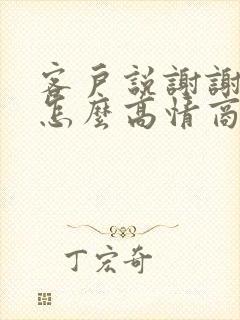 客戶説謝謝
怎麼高情商
丁宏奇